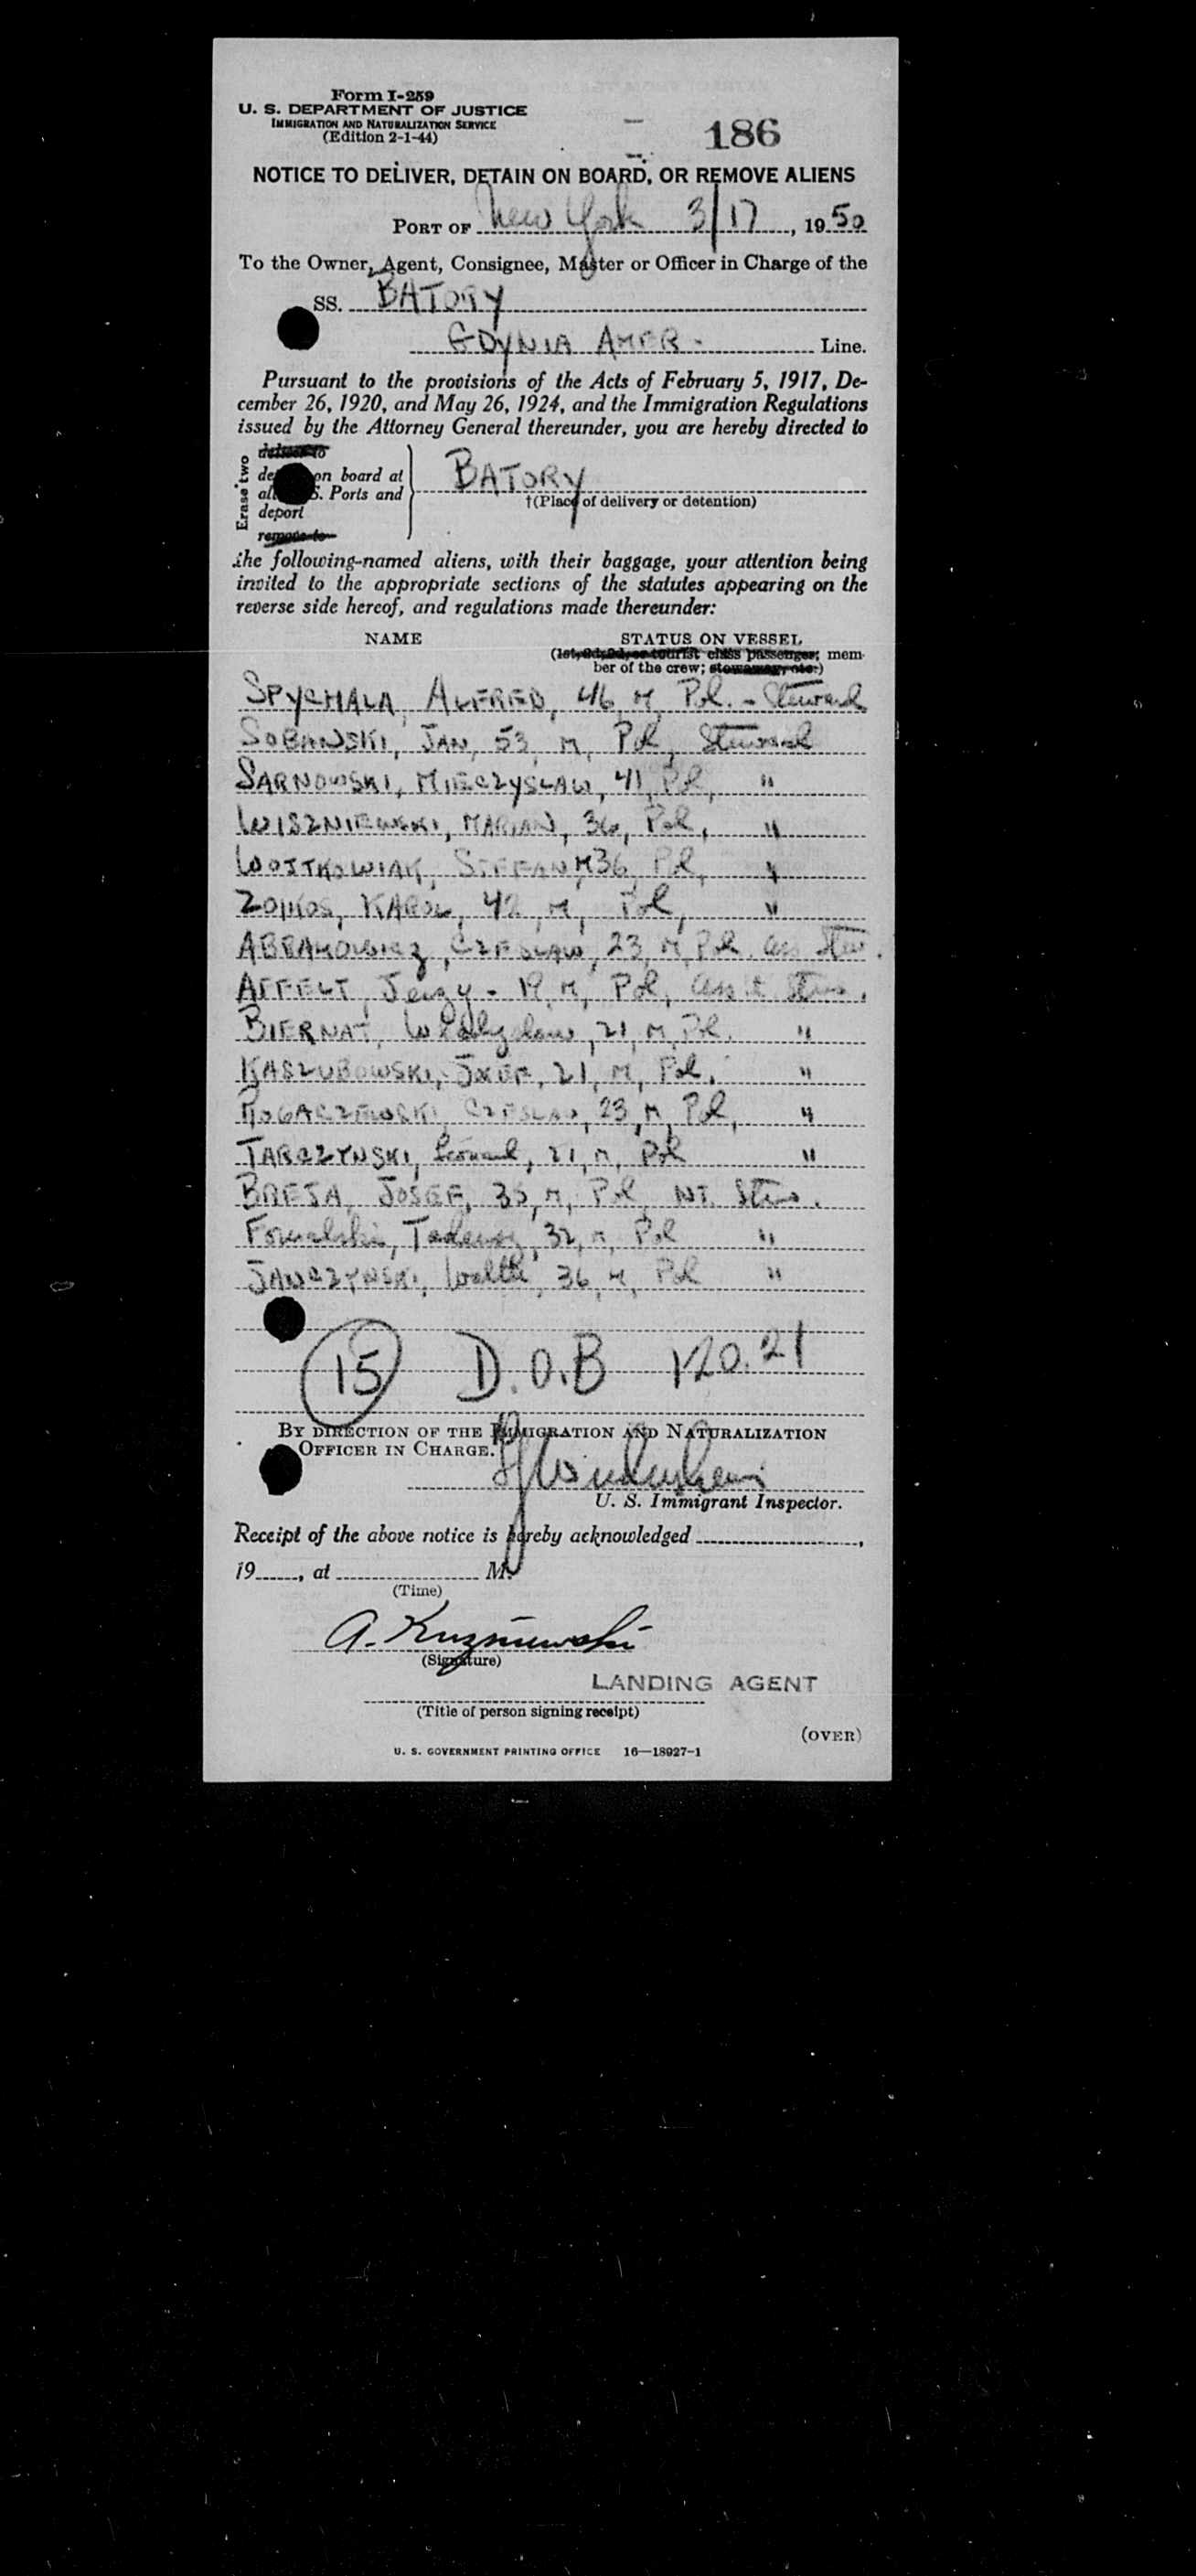 Form I-259
U. S. DEPARTMENT OF JUSTICE
IMMIGRATION AND NATURALIZATION SERVICE
(Edition 2-1-44)
186
NOTICE TO DELIVER, DETAIN ON BOARD, OR REMOVE ALIENS
PORT OF New York 3/17, 1950
To the Owner, Agent, Consignee, Master or Officer in Charge of the
SS. BATORY
GDYNIA AMER. Line.
Pursuant to the provisions of the Acts of February 5, 1917, De-
cember 26, 1920, and May 26, 1924, and the Immigration Regulations
issued by the Attorney General thereunder, you are hereby directed to
Erase two
on board at
S. Ports and
deport
remove to
BATORY
†(Place of delivery or detention)
the following-named aliens, with their baggage, your attention being
invited to the appropriate sections of the statutes appearing on the
reverse side hereof, and regulations made thereunder:
NAME STATUS ON VESSEL
(1st, 2d, 3d, or tourist class passenger; mem-
ber of the crew; stowaway, etc.)
SPYCHALA, ALFRED, 46, M, Pol. - Steward
SOBANSKI, JAN, 53, M, Pol, Steward
SARNOWSKI, MIECZYSLAW, 41, Pol, "
WISZNIEWSKI, MARIAN, 36, Pol, "
WOJTKOWIAK, STEFAN, M 36, Pol, "
KAROL, 42, M, Pol, "
ABRAMOWICZ, CZESLAW, 23, M, Pol. ass Stew.
AFFELT, Jerzy - 19, M, Pol, ass't Stew.
BIERNAT, Wladyslaw, 21, M, Pol. "
KASZUBOWSKI, JOZEF, 21, M, Pol. "
ROGACZEWSKI, CZESLAW, 23, M, Pol, "
TARCZYNSKI, 21, M, Pol "
BREJA, JOSEF, 35, M, Pol, NT. Stew.
Tadeusz, 32, M, Pol "
JANCZYNSKI, 36, M, Pol "
15 D.O.B 120.21
BY DIRECTION OF THE IMMIGRATION AND NATURALIZATION
OFFICER IN CHARGE.
U. S. Immigrant Inspector.
Receipt of the above notice is hereby acknowledged,
19, at M.
(Time)
A. Kuzniewski
(Signature)
LANDING AGENT
(Title of person signing receipt)
(OVER)
U. S. GOVERNMENT PRINTING OFFICE 16—18927-1